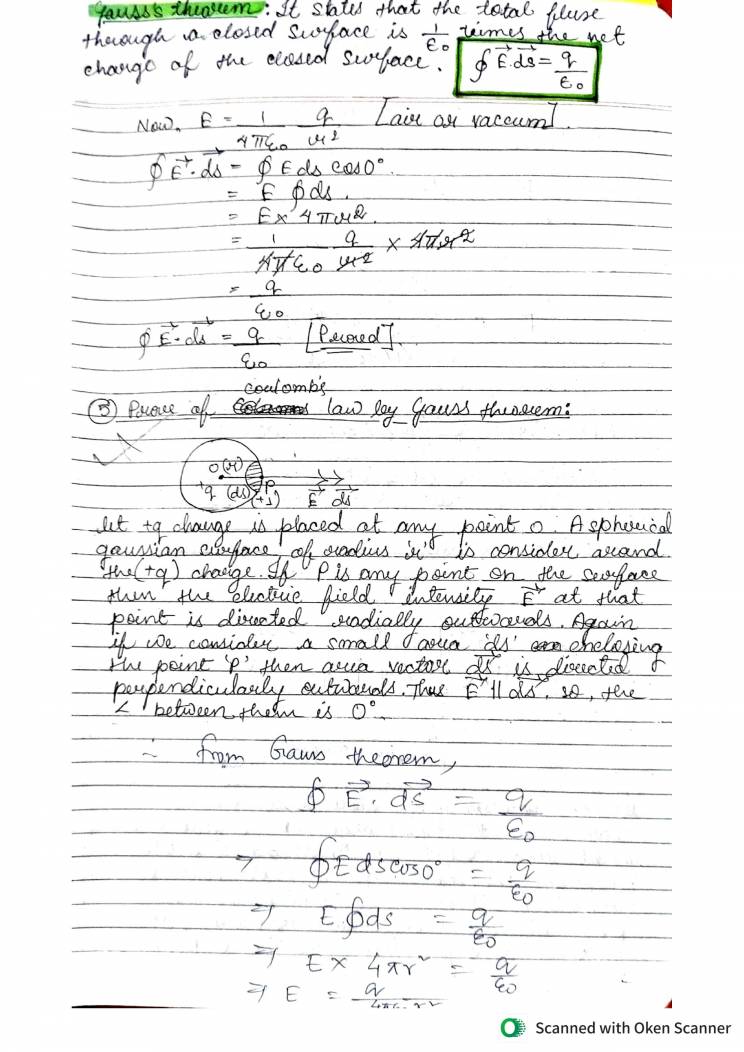 Gauss's theorem: It states that the total fluse
through a closed surface is 1/ε₀ times the net
charge of the closed surface. ∮ E⃗.ds⃗ = q/ε₀
Now, E = 1/4πε₀ q/r² [air or vaccum].
∮ E⃗.ds⃗ = ∮ E ds cos0°.
= E ∮ ds.
= E × 4πr².
= 1/4πε₀ q/r² × 4πr²
= q/ε₀
∮ E⃗.ds⃗ = q/ε₀ [Proved].
coulomb's
⑤ Prove of law by Gauss theorem:
O (r)
+q (ds) P (+1) E⃗ ds⃗
let +q charge is placed at any point O. A spherical
gaussian surface of radius 'r' is consider around
the (+q) charge. If P is any point on the surface
then the electric field intensity E⃗ at that
point is directed radially outwards. Again
if we consider a small area 'ds' enclosing
the point 'P' then area vector ds⃗ is directed
perpendicularly outwards. Thus E⃗ || ds⃗, so, the
∠ between them is 0°.
∴ from Gauss theorem,
∮ E⃗. ds⃗ = q/ε₀
⇒ ∮ E ds cos0° = q/ε₀
⇒ E ∮ ds = q/ε₀
⇒ E × 4πr² = q/ε₀
⇒ E = q/4πε₀r²
Scanned with Oken Scanner